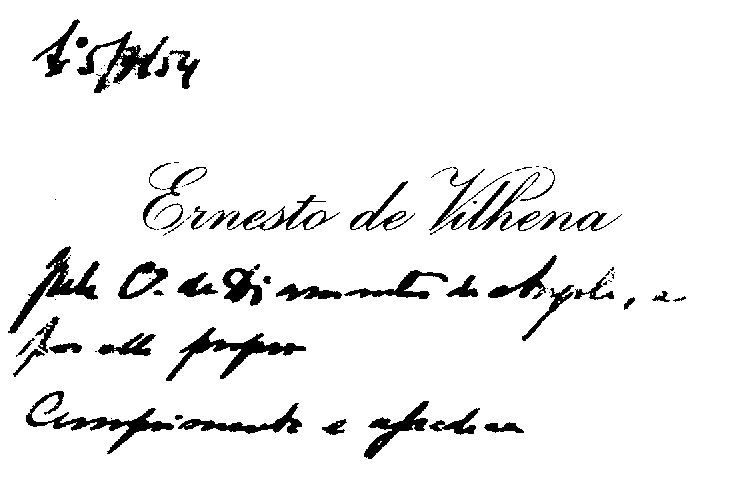 Ernesto de Vilhena
Pela C. de Diamantes de Angola, e
por elle proprio
Cumprimenta e agradece